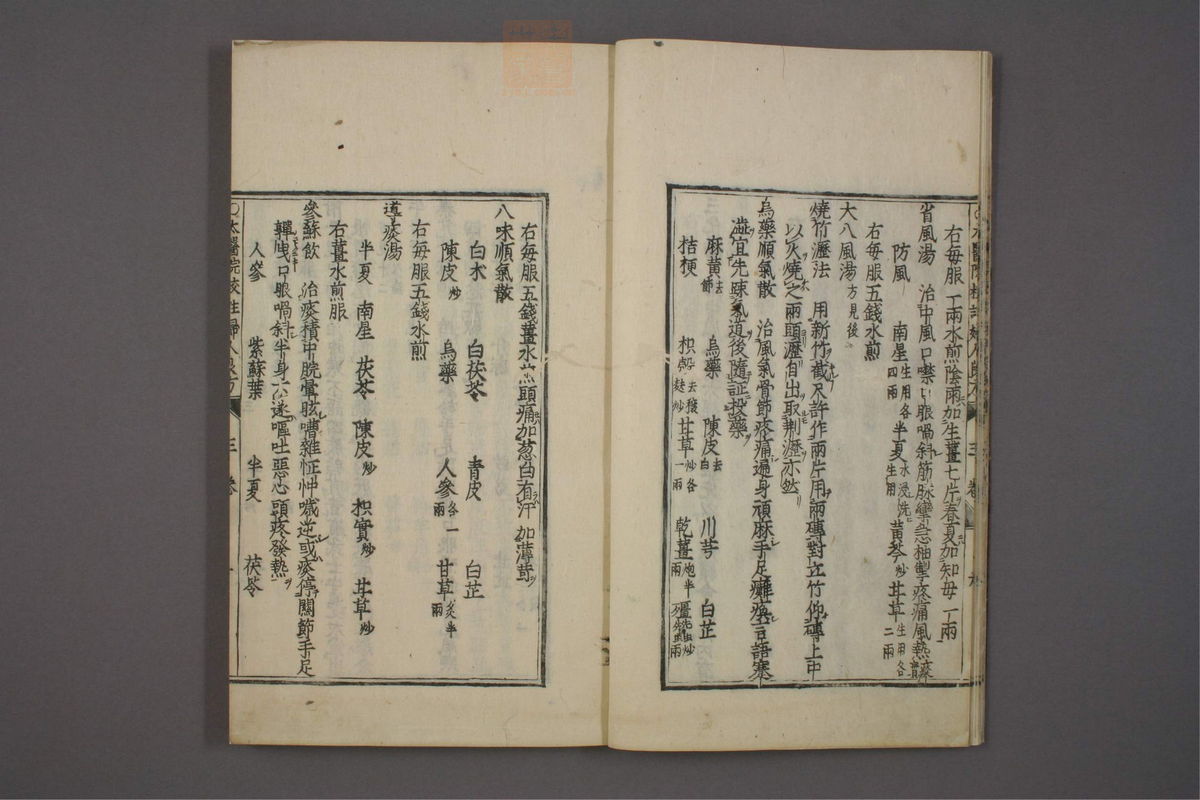 右每服一兩水煎陰雨加生薑七片春夏加知母一兩
省風湯　治中風口噤口眼喎斜筋脉攣急抽掣疼痛風熱痰
防風　南星生用四兩　半夏水浸洗生用　黃芩炒　甘草生用各二兩
右每服五錢水煎
大八風湯方見後
燒竹瀝法　用新竹截尺許作兩片用兩磚對立竹仰磚上中
以火燒之兩頭瀝自出取荆瀝亦然
烏藥順氣散　治風氣骨節疼痛遍身頑麻手足癱瘓言語蹇
澁宜先踈氣道後隨証投藥
麻黃去節　烏藥　陳皮去白　川芎　白芷
桔梗　枳殼去穰麩炒　甘草炒各一兩　乾薑炮半兩　殭蠶炒
右每服五錢薑水煎頭痛加葱白有汗加薄苛
八味順氣散
白术　白茯苓　青皮　白芷
陳皮炒　烏藥　人參各一兩　甘草炙半兩
右每服五錢水煎
導痰湯
半夏　南星　茯苓　陳皮炒　枳實炒　甘草炒
右薑水煎服
參蘇飲　治痰積中脘䀮眩嘈雜怔忡噦逆或痰停關節手足
嚲曳口眼喎斜半身不遂嘔吐惡心頭疼發熱
人參　紫蘇葉　半夏　茯苓
太醫院校註婦人良方　三卷